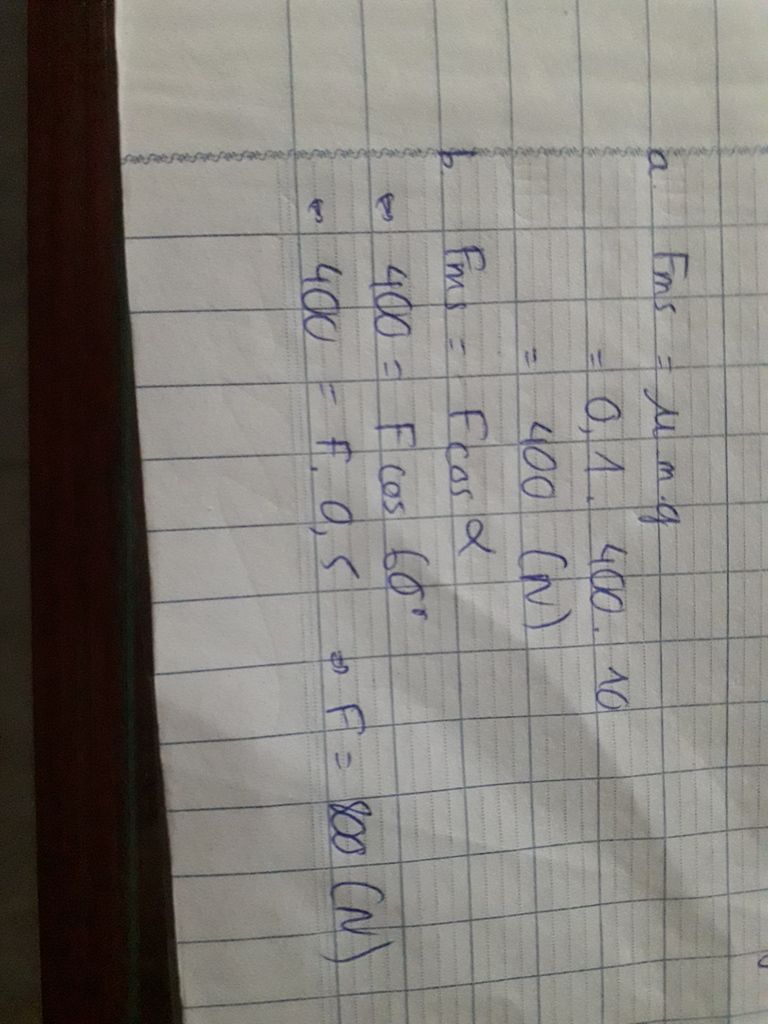 a. Fms = μ.m.g
= 0,1. 400. 10
= 400 (N)
b Fms = F cos α
⇔ 400 = F cos 60°
⇔ 400 = F. 0,5 ⇔ F = 800 (N)